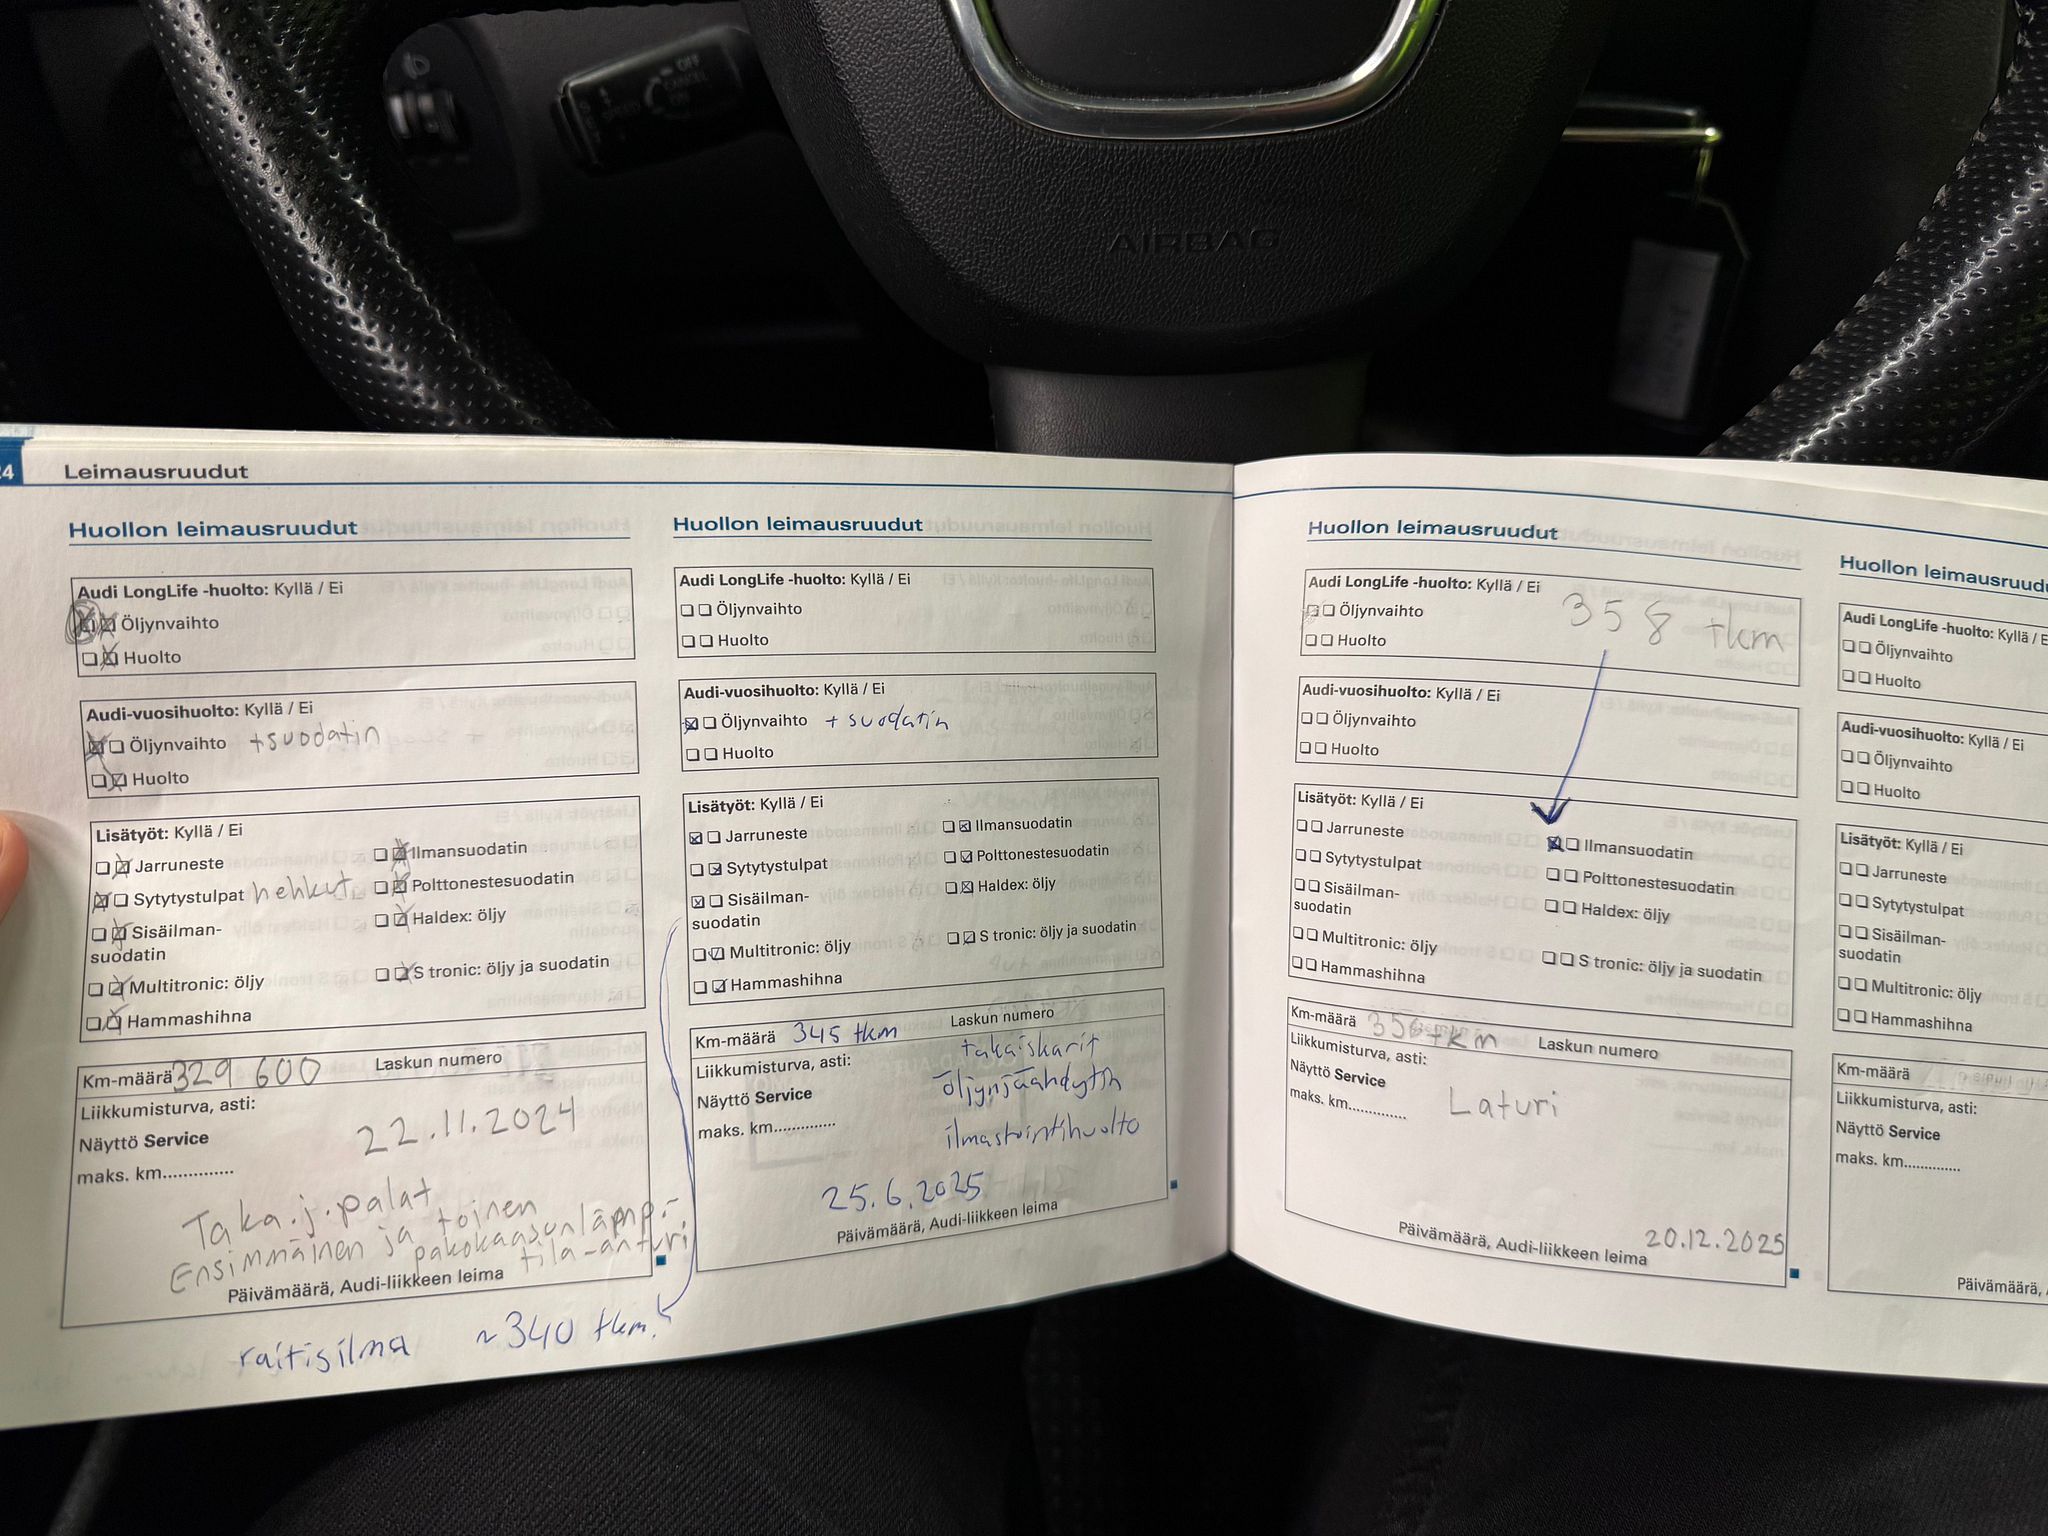 OFF
CANCEL
AIRBAG
24 Leimausruudut
Huollon leimausruudut
Audi LongLife -huolto: Kyllä / Ei
Öljynvaihto
Huolto
Audi-vuosihuolto: Kyllä / Ei
Öljynvaihto +suodatin
Huolto
Lisätyöt: Kyllä / Ei
Jarruneste
Ilmansuodatin
Sytytystulpat hehkut.
Polttonestesuodatin
Sisäilman-
suodatin
Haldex: öljy
Multitronic: öljy
S tronic: öljy ja suodatin
Hammashihna
Km-määrä 329 600 Laskun numero
Liikkumisturva, asti:
Näyttö Service
22.11.2024
maks. km.............
Taka.j.palat
Ensimmäinen ja toinen
pakokaasunlämp.-
tila-anturi
Päivämäärä, Audi-liikkeen leima
raitisilma ~340 tkm.
Huollon leimausruudut
Audi LongLife -huolto: Kyllä / Ei
Öljynvaihto
Huolto
Audi-vuosihuolto: Kyllä / Ei
Öljynvaihto + suodatin
Huolto
Lisätyöt: Kyllä / Ei
Jarruneste
Ilmansuodatin
Sytytystulpat
Polttonestesuodatin
Sisäilman-
suodatin
Haldex: öljy
Multitronic: öljy
S tronic: öljy ja suodatin
Hammashihna
Km-määrä 345 tkm Laskun numero
Liikkumisturva, asti:
takaiskarit
Näyttö Service
öljynjäähdytin
maks. km.............
ilmastointihuolto
25.6.2025
Päivämäärä, Audi-liikkeen leima
Huollon leimausruudut
Audi LongLife -huolto: Kyllä / Ei
Öljynvaihto
358 tkm
Huolto
Audi-vuosihuolto: Kyllä / Ei
Öljynvaihto
Huolto
Lisätyöt: Kyllä / Ei
Jarruneste
Ilmansuodatin
Sytytystulpat
Polttonestesuodatin
Sisäilman-
suodatin
Haldex: öljy
Multitronic: öljy
S tronic: öljy ja suodatin
Hammashihna
Km-määrä 356 tkm Laskun numero
Liikkumisturva, asti:
Näyttö Service
maks. km.............
Laturi
20.12.2025
Päivämäärä, Audi-liikkeen leima
Huollon leimausruudu
Audi LongLife -huolto: Kyllä / E
Öljynvaihto
Huolto
Audi-vuosihuolto: Kyllä / Ei
Öljynvaihto
Huolto
Lisätyöt: Kyllä / Ei
Jarruneste
Sytytystulpat
Sisäilman-
suodatin
Multitronic: öljy
Hammashihna
Km-määrä
Liikkumisturva, asti:
Näyttö Service
maks. km.............
Päivämäärä,